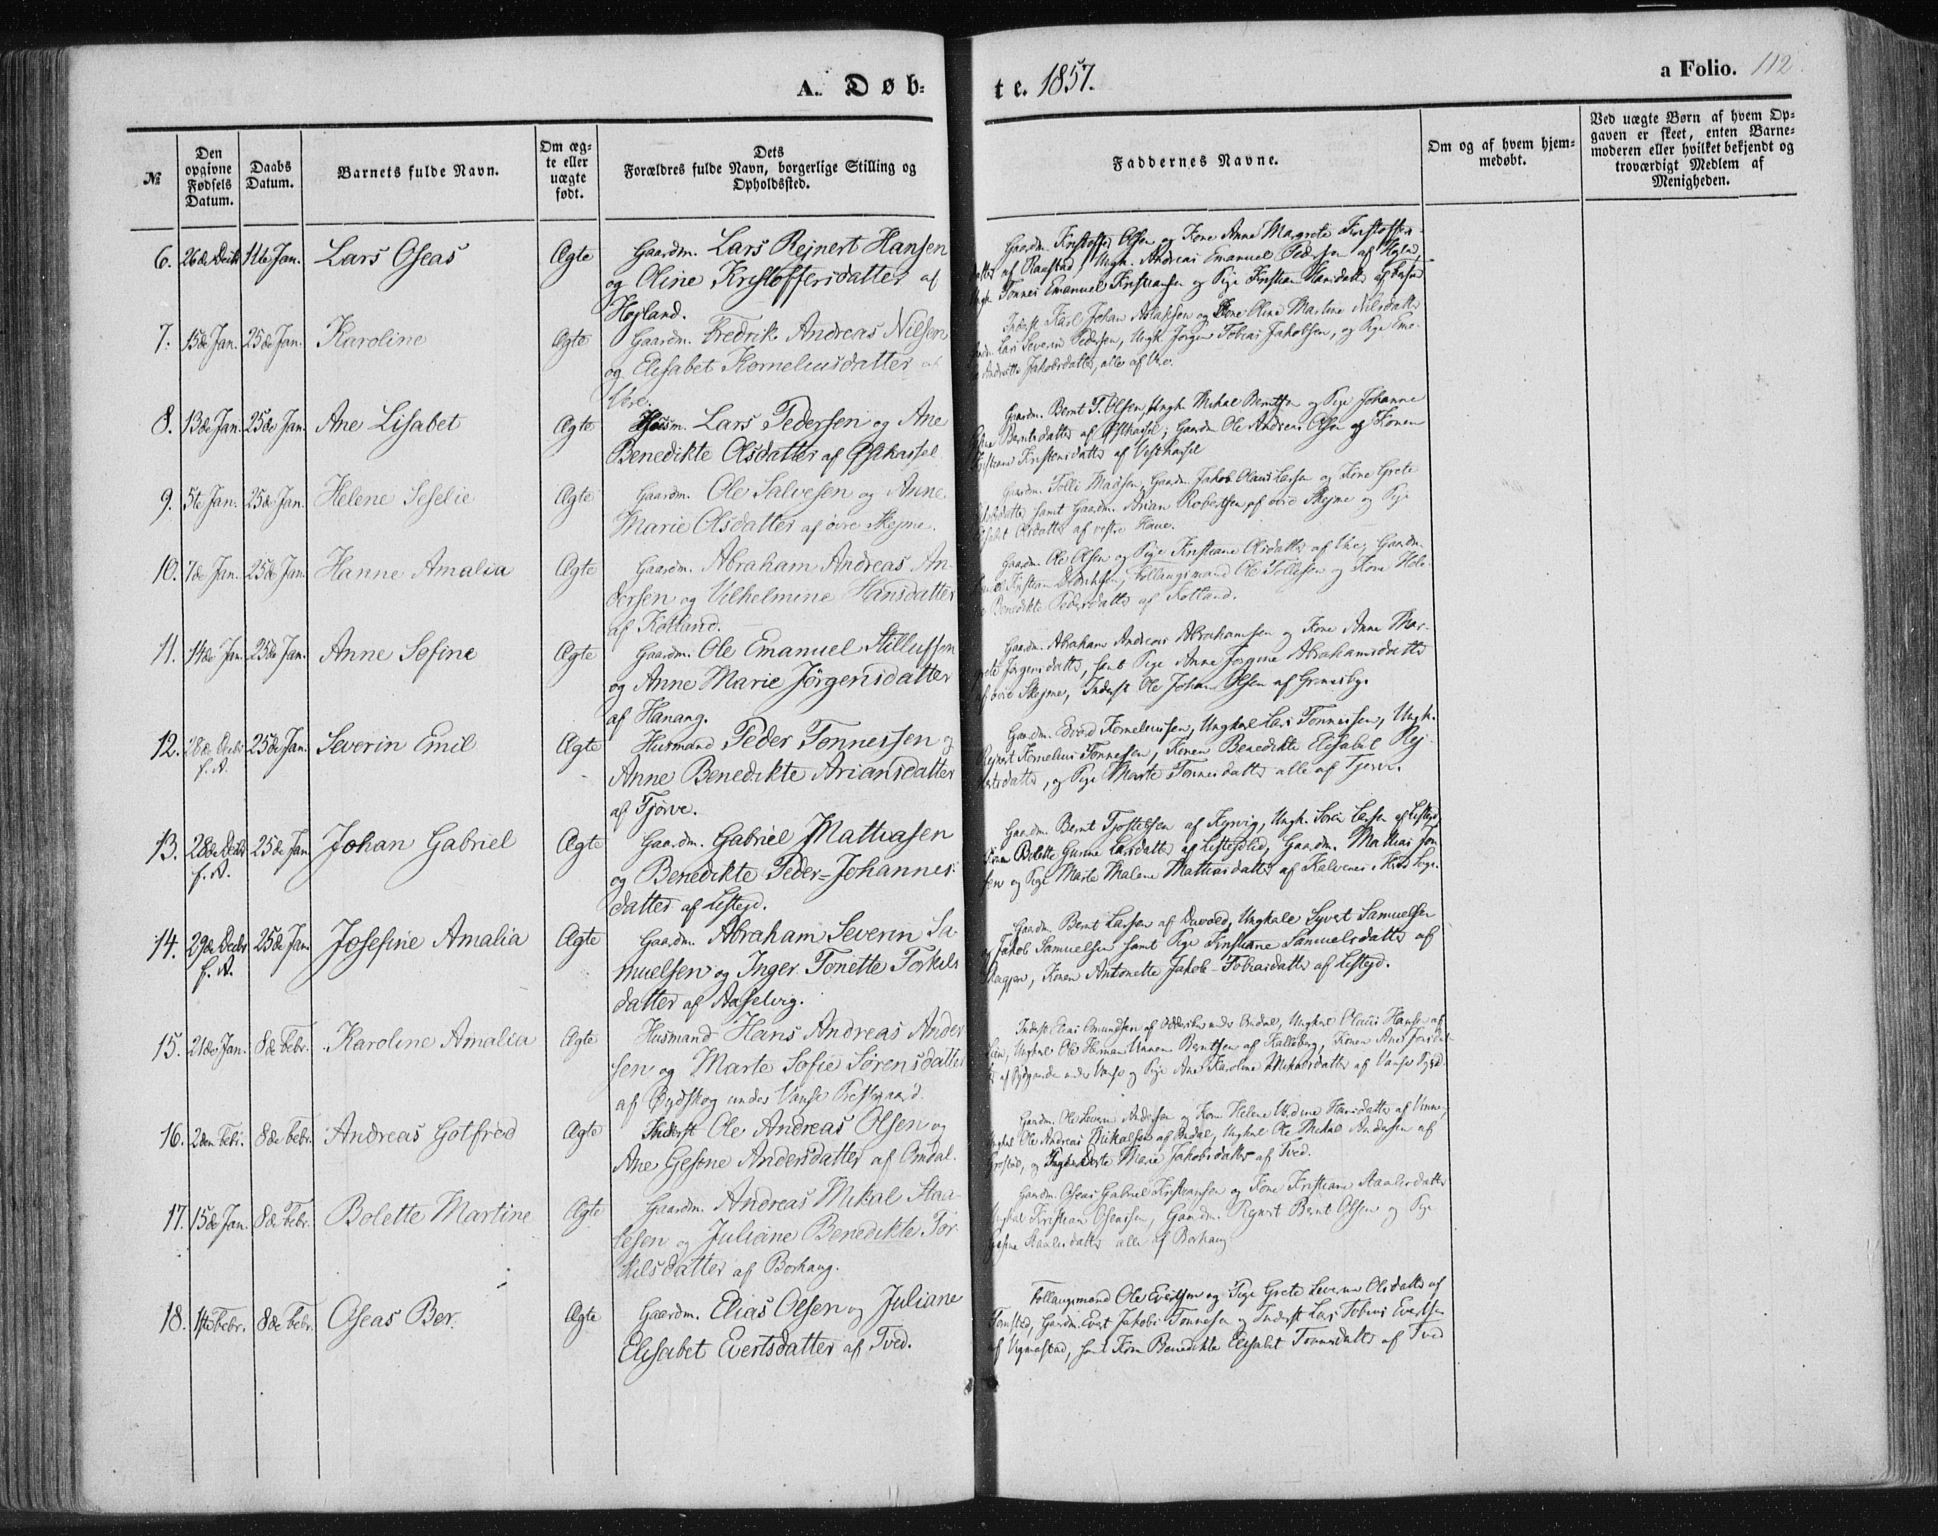 A. Døb-
te. 1857.
a Folio. 112
№
Den opgivne Fødsels Datum.
Daabs Datum.
Barnets fulde Navn.
Om ægte eller uægte født.
Dets Forældres fulde Navn, borgerlige Stilling og Opholdssted.
Faddernes Navne.
Om og af hvem hjemmedøbt.
Ved uægte Børn af hvem Opgaven er skeet, enten Barnemoderen eller hvilket bekjendt og troværdigt Medlem af Menigheden.
6. 26de Decbr 11te Jan. Lars Oseas Ægte Gaardm. Lars Rejnert Hansen
og Oline Kristoffersdatter af
Højland.
Gaardm. Kristoffer Olsen og Kone Anne Margrete Kristoffers-
datter af Raustad, Ungk. Andreas Emanuel Pedersen af
Ungk. Tønnes Emanuel Kristiansen og Pige Kristian Hansdatter af
7. 15de Jan. 25de Jan. Karoline Ægte Gaardm. Fredrik Andreas Nilsen
og Elisabet Korneliusdatter af
Vere.
Inderst Karl Johan Aslaksen og Kone Oline Martine Nilsdatter
Gaardm. Lars Severin Pedersen, Ungk. Jørgen Tobias Jakobsen, og Pige Emo-
Andrette Jakobsdatter, alle af Vere.
8. 13de Jan. 25de Jan. Ane Lisabet Ægte Husm. Lars Pedersen og Ane
Benedikte Olsdatter af Østhassel
Gaardm. Bernt T. Olsen, Ungk. Mikal Berntsen og Pige Johanne
Berntsdatter af Østhassel; Gaardm. Ole Andreas Olsen og Konen
Kristiane Kristensdatter af Vesthassel
9. 5te Jan. 25de Jan. Helene Seselie Ægte Gaardm. Ole Salvesen og Anne
Marie Olsdatter af øvre Skejme.
Gaardm. Tolli Madsen, Gaardm. Jakob Olaus Larsen og Kone Grete
samt Gaardm. Arian Robertsen af øvre Skejme og Pige
Olsdatter af vestre Haue.
10. 7de Jan. 25de Jan. Hanne Amalia Ægte Gaardm. Abraham Andreas An-
dersen og Vilhelmine Hansdatter
af Kotland.
Gaardm. Ole Olsen og Pige Kristiane Olsdatter af Vere, Gaardm.
Kristian Didriksen, Follaugsmand Ole Tollesen og Kone Hele-
ne Benedikte Pedersdatter af Kotland.
11. 14de Jan. 25de Jan. Anne Sofine Ægte Gaardm. Ole Emanuel Stillufsen
og Anne Marie Jörgensdatter
af Hanang.
Gaardm. Abraham Andreas Abrahamsen og Kone Anne Mar-
grete Jørgensdatter, samt Pige Anne Jørgine Abrahamsdatter
af øvre Skejme, Inderst Ole Johan Olsen af Grimsby.
12. 28de Decbr f. A. 25de Jan. Severin Emil Ægte Husmand Peder Tønnessen og
Anne Benedikte Ariansdatter
af Tjørve.
Gaardm. Evard Korneliusen, Ungkarl Lars Tønnessen, Ungk.
Rejnert Kornelius Tønnessen, Konen Benedikte Elisabet Rej-
nertsdatter, og Pige Marte Tønnesdatter alle af Tjørve.
13. 28de Decbr f. A. 25de Jan. Johan Gabriel Ægte Gaardm. Gabriel Mattiasen
og Benedikte Peder=Johannes-
datter af Listejd.
Gaardm. Bernt Tjostelsen af Rejrvig, Ungk. Søren Larsen af Listejd,
Kone Bolette Gurine Larsdatter af Listejdlid, Gaardm. Mathias Jon-
sen og Pige Marte Malene Mattiasdatter af Kalvenes i Hitterø Sogn.
14. 29de Decbr f. A. 25de Jan. Josefine Amalia Ægte Gaardm. Abraham Severin Sa-
muelsen og Inger Tonette Torkils-
datter af Aaselvig.
Gaardm. Bernt Larsen af Duvold, Ungkale Syvert Samuelsen
og Jakob Samuelsen samt Pige Kristiane Samuelsdatter af
Skagjen, Konen Antonette Jakob-Tobiasdatter af Listejd.
15. 21de Jan. 8de Febr. Karoline Amalia Ægte Husmand Hans Andreas Ander-
sen og Marte Sofie Sørensdatter
af Øydskog under Vanse Prestegaard.
Inderst Elias Omundsen af under Omdal, Ungkarl Claus Hansen af
Lien, Ungkal Ole Herman Berntsen af Kalleberg, Konen Ane Jonsdat-
ter af under Vanse og Pige Ane Karoline Mikalsdatter af Vanse
16. 2den Febr. 8de Febr. Andreas Gotfred Ægte Inderst Ole Andreas Olsen og
Ane Gesine Andersdatter af Omdal.
Gaardm. Ole Severin Andersen og Kone Helene Hansdatter af
Ungkal Ole Andreas Mikalsen af Omdal, Ungkal Ole Mikal Andersen af
og Marie Jakobsdatter af Tved.
17. 15de Jan. 8de Febr. Bolette Martine Ægte Gaardm. Andreas Mikal Staa-
lesen og Juliane Benedikte Tor-
kilsdatter af Borhaug.
Gaardm. Oseas Gabriel Kristiansen og Kone Kristiane Staalesdatter
Ungkal Kristian Osensen, Gaardm. Rejnert Bernt Olsen og Pige
Gesine Staalesdatter alle af Borhaug
18. 1ste Febr. 8de Febr. Oseas Ber. Ægte Gaardm. Elias Olsen og Juliane
Elisabet Evertsdatter af Tved.
Follaugsmand Ole Evertsen og Pige Grete Severine Olsdatter af
Gaardm. Evert Jakob Tønnesen og Inderst Lars Tobias Evertsen
af Vigmostad, samt Kone Benedikte Elisabet Tønnesdatter af Tved